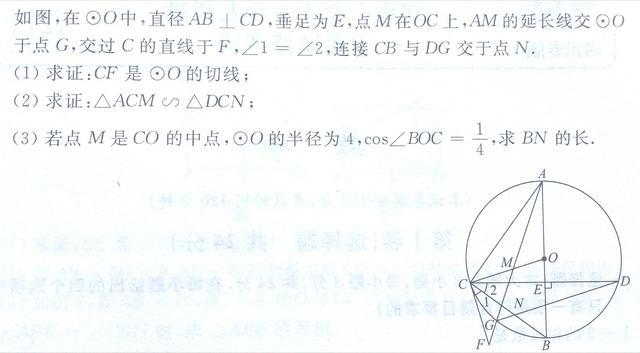 如图,在⊙O中,直径AB⊥CD,垂足为E,点M在OC上,AM的延长线交⊙O
于点G,交过C的直线于F,∠1=∠2,连接CB与DG交于点N.
(1) 求证:CF是⊙O的切线;
(2) 求证:△ACM∽△DCN;
(3) 若点M是CO的中点,⊙O的半径为4,cos∠BOC=1/4,求BN的长.
A
M
O
C
2
E
D
1
N
G
F
B